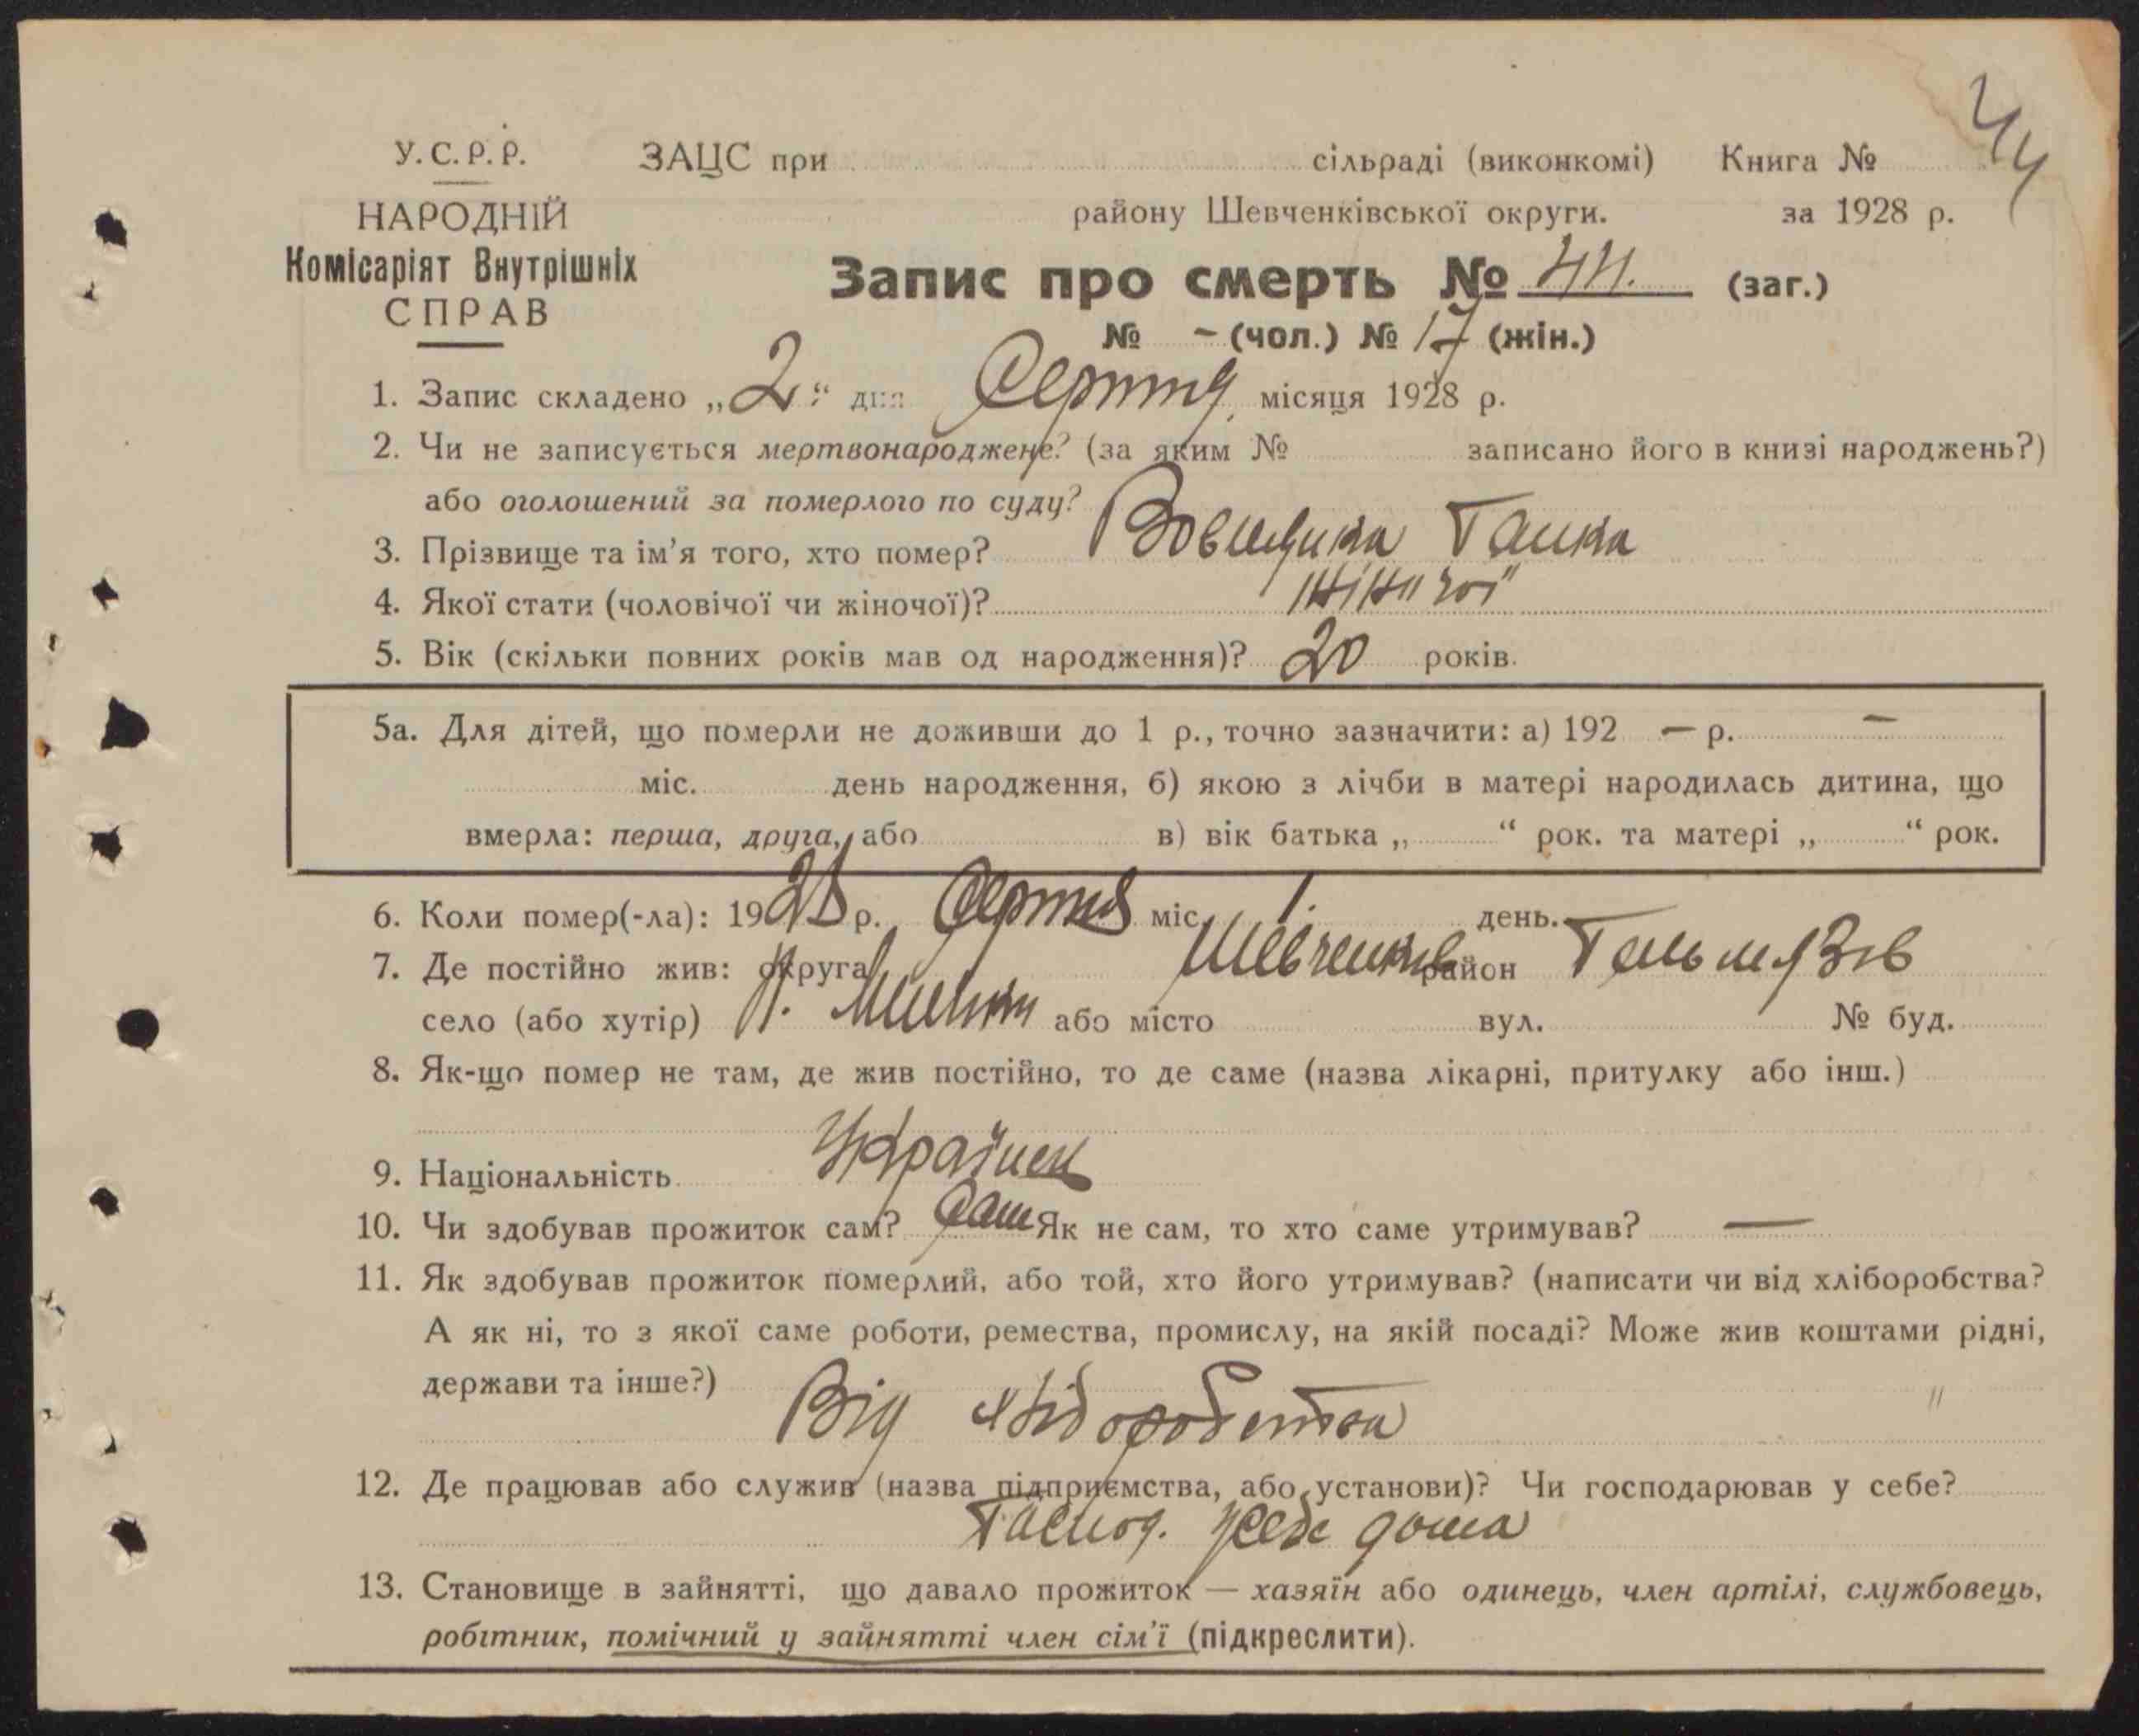 44
У.С.Р.Р. ЗАЦС при сільраді (виконкомі) Книга №
НАРОДНІЙ району Шевченківської округи. за 1928 р.
Комісаріят Внутрішніх
СПРАВ
Запис про смерть № 44. (заг.)
№ – (чол.) № 17 (жін.)
1. Запис складено „2“ дня Серпня місяця 1928 р.
2. Чи не записується мертвонароджене? (за яким № записано його в книзі народжень?)
або оголошений за померлого по суду?
3. Прізвище та ім’я того, хто помер? Ганка
4. Якої стати (чоловічої чи жіночої)? жіночої
5. Вік (скільки повних років мав од народження)? 20 років.
5а. Для дітей, що померли не доживши до 1 р., точно зазначити: а) 192 — р. —
міс. день народження, б) якою з лічби в матері народилась дитина, що
вмерла: перша, друга, або в) вік батька „ “ рок. та матері „ “ рок.
6. Коли помер(-ла): 1928 р. Серпня міс. 1. день.
7. Де постійно жив: округа Шевченків район Гельмязів
село (або хутір) або місто вул. № буд.
8. Як-що помер не там, де жив постійно, то де саме (назва лікарні, притулку або інш.)
9. Національність Українец
10. Чи здобував прожиток сам? Сам Як не сам, то хто саме утримував? —
11. Як здобував прожиток померлий, або той, хто його утримував? (написати чи від хліборобства?
А як ні, то з якої саме роботи, ремества, промислу, на якій посаді? Може жив коштами рідні,
держави та інше?)
Від хліборобства
12. Де працював або служив (назва підприємства, або установи)? Чи господарював у себе?
Господ. у себе дома
13. Становище в зайнятті, що давало прожиток — хазяїн або одинець, член артілі, службовець,
робітник, помічний у зайнятті член сім’ї (підкреслити).